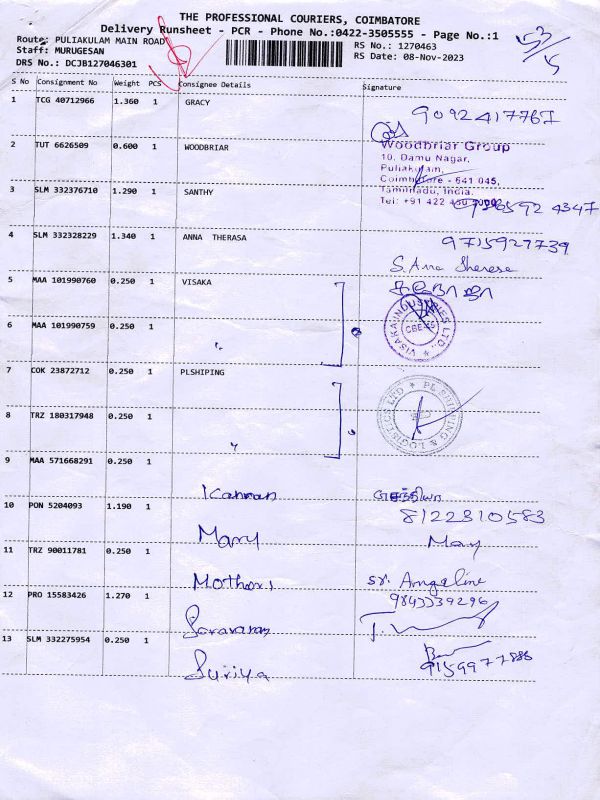 THE PROFESSIONAL COURIERS, COIMBATORE
Delivery Runsheet - PCR - Phone No.:0422-3505555 - Page No.:1
Route: PULIAKULAM MAIN ROAD RS No.: 1270463
Staff: MURUGESAN RS Date: 08-Nov-2023
DRS No.: DCJB127046301
53/5
S No Consignment No Weight PCS Consignee Details Signature
1 TCG 40712966 1.360 1 GRACY 9092417761
2 TUT 6626509 0.600 1 WOODBRIAR Woodbriar Group
10, Damu Nagar,
Puliakulam,
Coimbatore - 641 045,
Tamilnadu, India.
Tel: +91 422
3 SLM 332376710 1.290 1 SANTHY
4 SLM 332328229 1.340 1 ANNA THERASA 9715927739
S. Ana Sherese
5 MAA 101990760 0.250 1 VISAKA
VISAKA INDUSTRIES LTD.,
CBE-45
6 MAA 101990759 0.250 1 "
7 COK 23872712 0.250 1 PLSHIPING
PL SHIPPING & LOGISTICS LTD
8 TRZ 180317948 0.250 1 "
9 MAA 571668291 0.250 1 Kannan
10 PON 5204093 1.190 1 Mary 8122310583
May
11 TRZ 90011781 0.250 1 Mothers sr. Amgeline
12 PRO 15583426 1.270 1 Saravanan 9843339296
13 SLM 332275954 0.250 1 Suriya